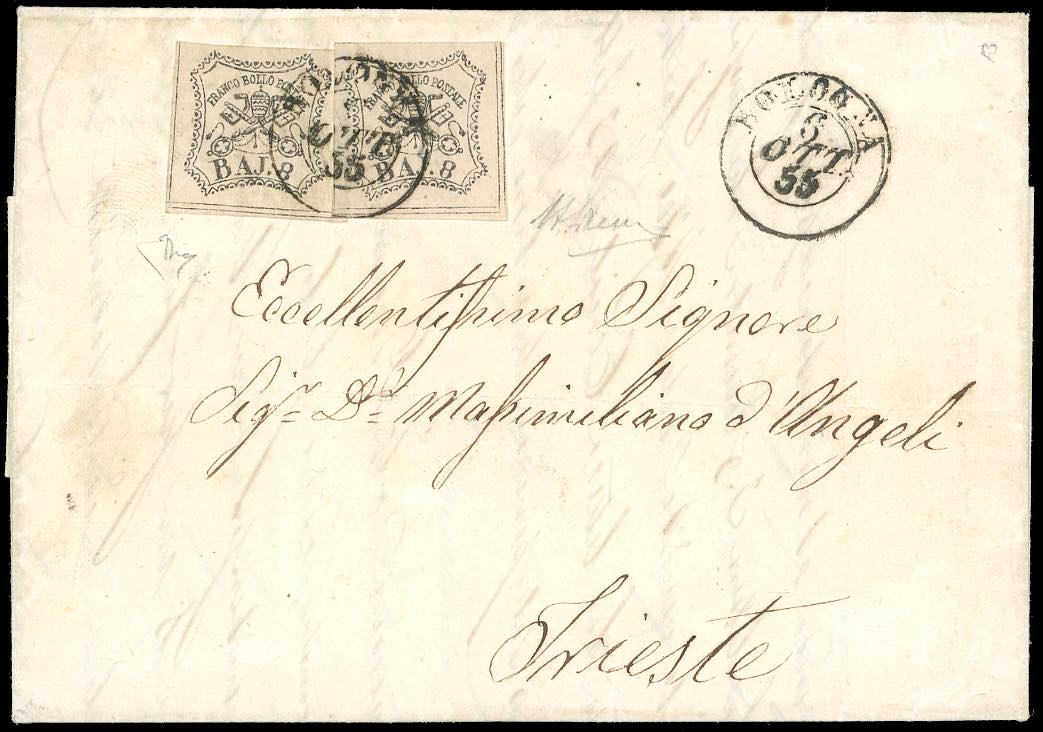 FRANCO BOLLO POSTALE
BAJ. 8
BOLLO POSTALE
BAJ. 8
BOLOGNA
6
OTT.
55
BOLOGNA
6
OTT.
55
Eccellentissimo Signore
Sigr. Dr. Massimiliano d'Angeli
Trieste